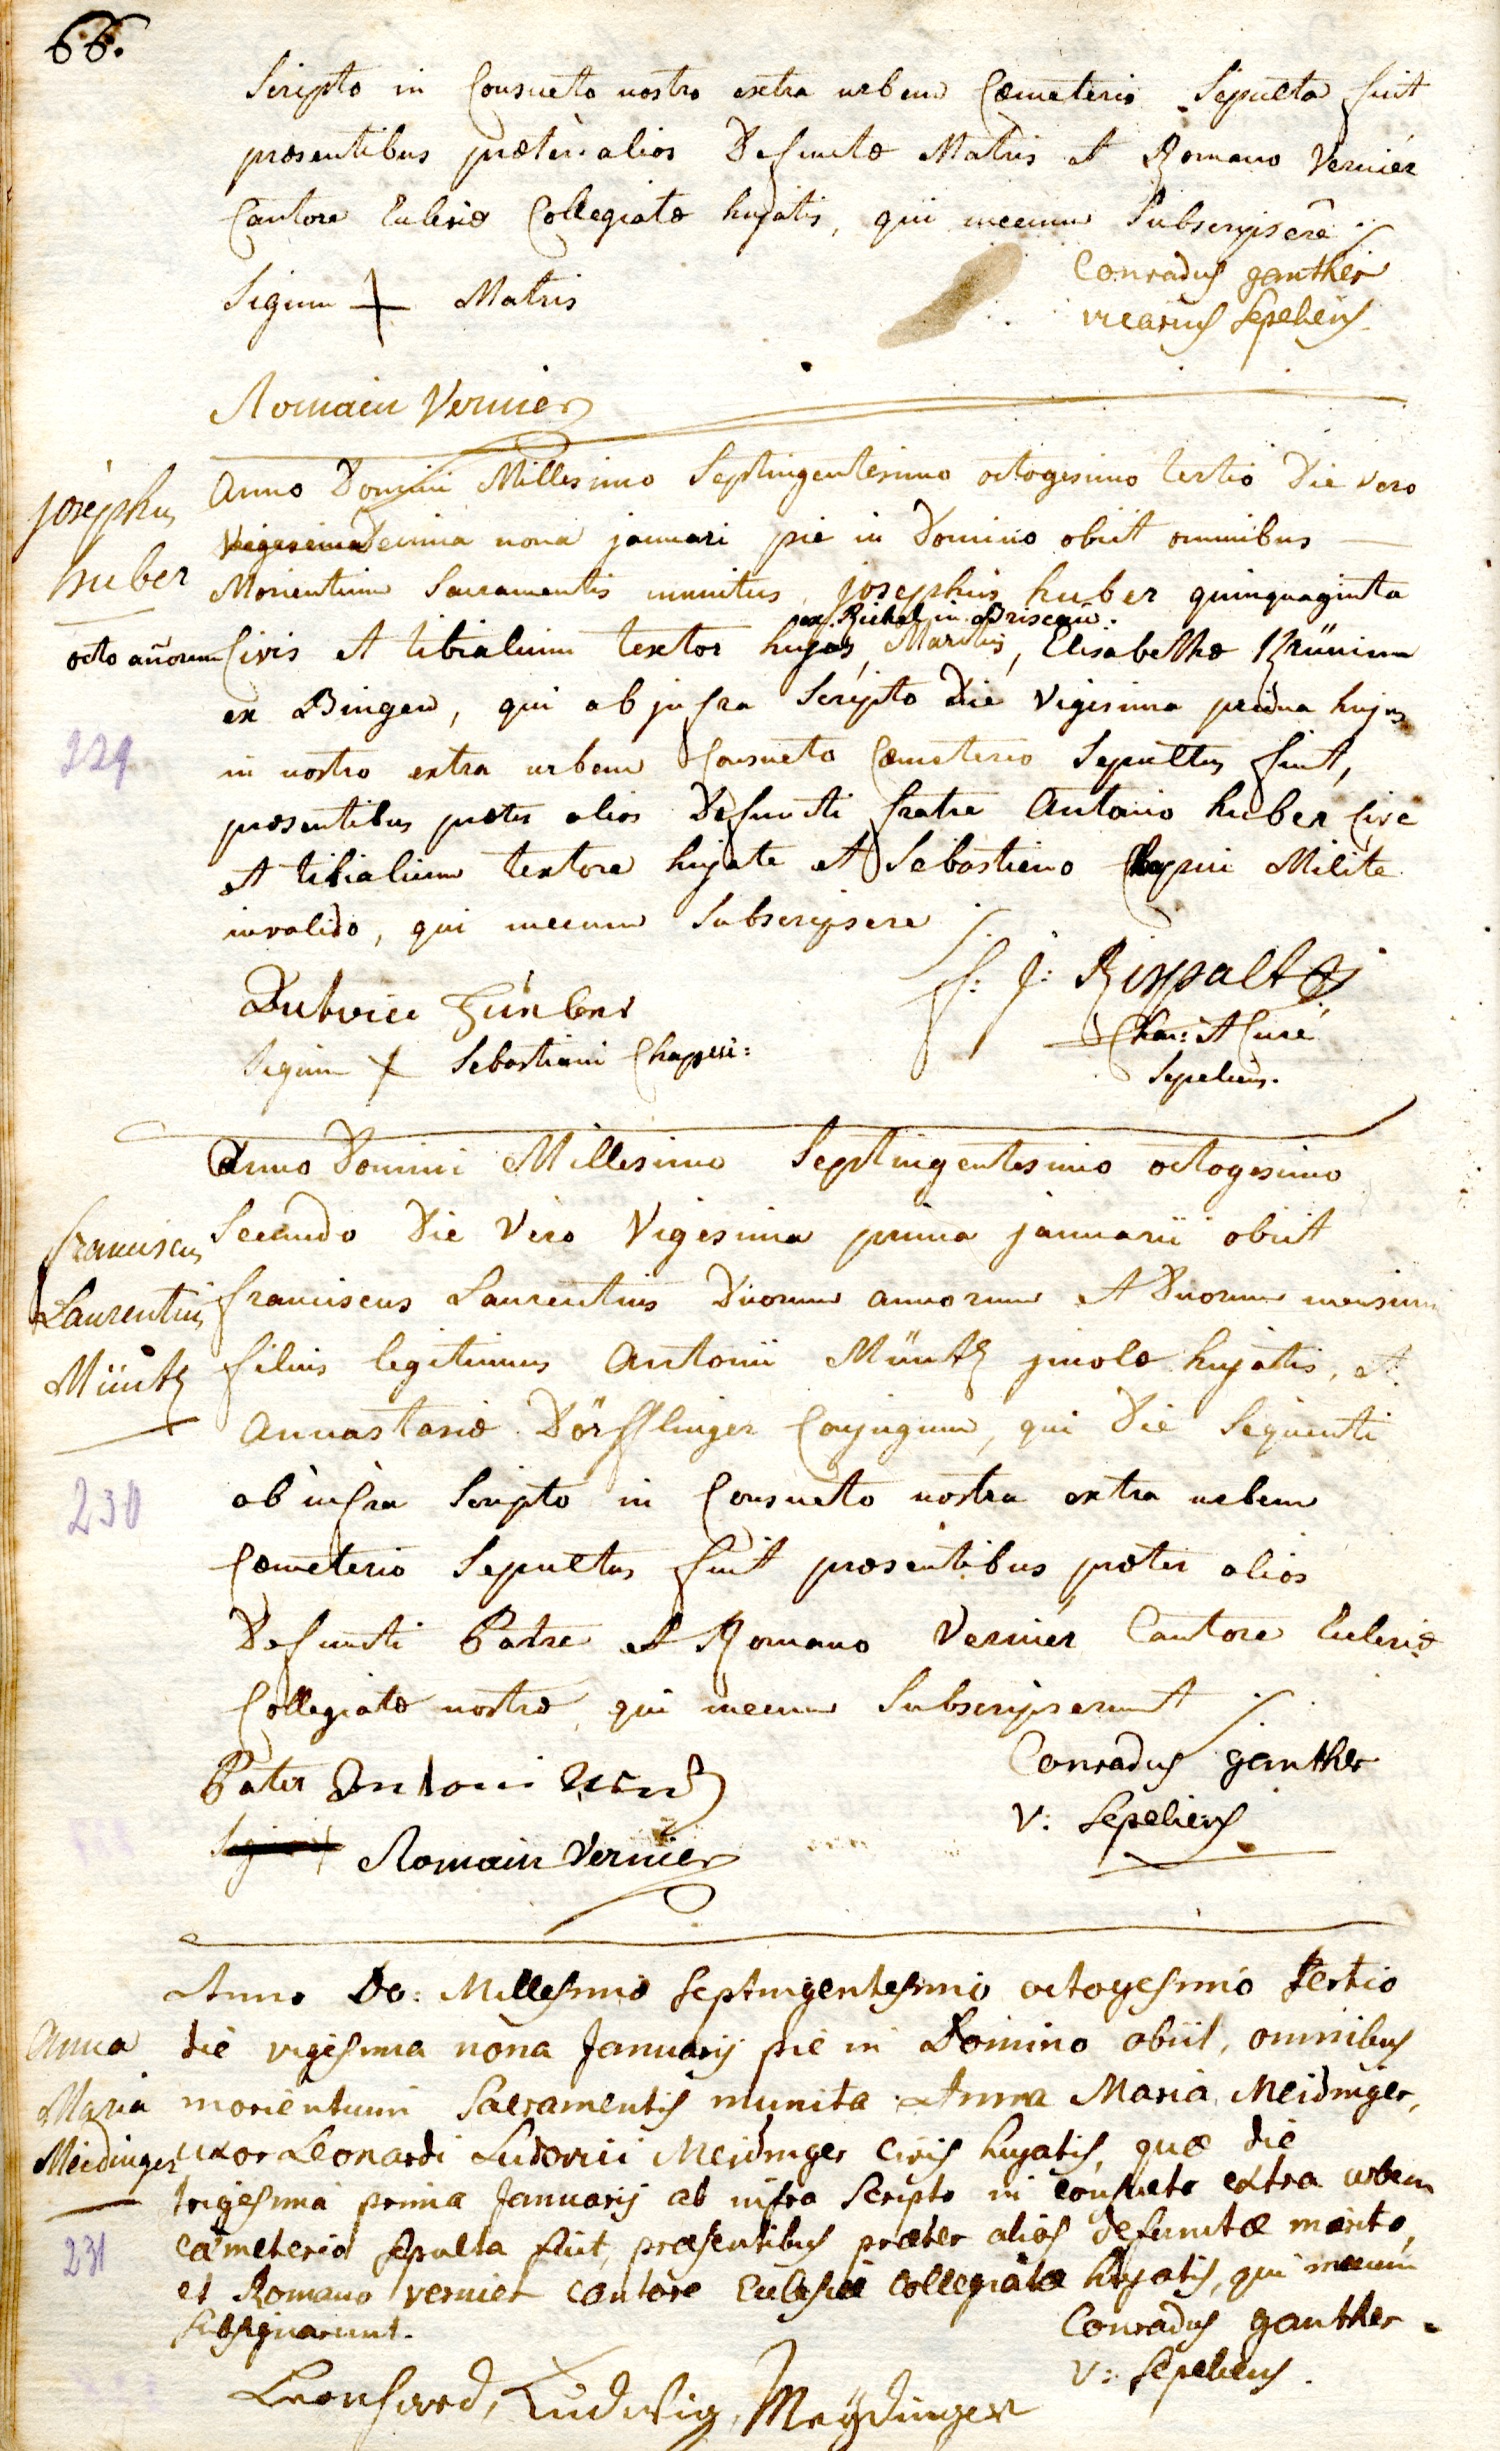 66.
Scripto in Consueto nostro extra urbem Cœmeterio Sepulta fuit
præsentibus præter alios Defunctæ Matris et Romano Vernier
Cantore Ecclesiæ Collegiatæ hujatis, qui mecum Subscripsere
Conradus ganther
Signum + Matris
vicarius Sepeliens
Romain Vernier
Anno Domini Millesimo Septingentesimo octogesimo tertio Die vero
josephus
Decima nona januari pie in Domino obiit omnibus
huber
Morientium Sacramentis munitus josephus huber quinquaginta
ex Riehel in Briscau:
octo añorum Civis et tibialium textor hujas, Maritus, Elisabethæ Brünim
ex Bingen, qui ab jnfra Scripto Die Vigesima prima hujus
229
in nostro extra urbem Consueto Cœmeterio Sepultus fuit,
præsentibus præter alios Defuncti fratre Antonio huber Cive
et tibialium textore hujate et Sebastiano Chapui Milite
invalido, qui mecum Subscripsere
f: j: Rispalt
Chan: et Curé
Signum + Sebastiani Chappui:
Sepeliens.
Anno Domini Millesimo Septingentesimo octogesimo
Secundo Die Vero Vigesima prima januarii obiit
franciscus
Laurentius
Müntz
franciscus Laurentius Duorum annorum et Duorum mensium
filius legitimus Antonii Müntz jncolæ hujatis, et
Annastasiæ Dörfflinger Conjugum, qui Die Sequenti
230
ab infra Scripto in Consueto nostra extra urbem
Cœmeterio Sepultus fuit præsentibus præter alios
Defuncti Patre et Romano Vernier Cantore Ecclesiæ
Collegiatæ nostræ, qui mecum Subscripserunt
Conradus ganther
Pater Antoni
V: Sepeliens
Romain Vernier
Anno Do: Millesimo Septingentesimo octogesimo tertio
Anna
Maria
Meidinger
die vigesima nona Januarij pie in Domino obiit, omnibus
morientium Sacramentis munita Anna Maria Meidinger,
uxor Leonardi Ludovici Meidinger civis hujatis, quæ die
trigesima prima Januarij ab infra Scripto in consueto extra urbem
231
cæmeterio sepulta fuit, præsentibus præter alios defunctæ marito,
et Romano vernier cantore Ecclesiæ Collegiatæ hujatis, qui mecum
subsignarunt.
Conradus ganther
V: Sepeliens.
Leonhard, Ludwig, Meydinger